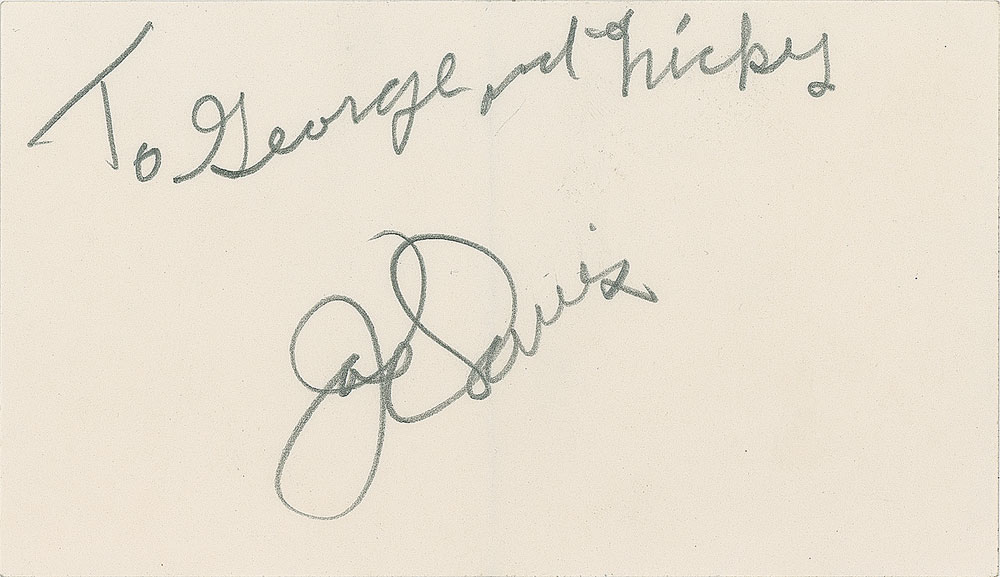 To George and Nicky
Joe Davis